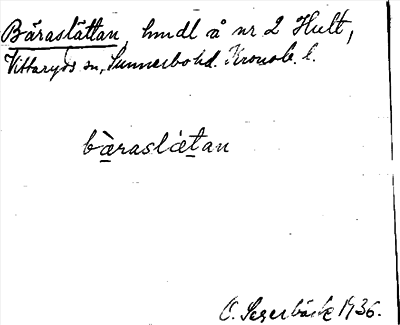 Båraslättan, hmdl å nr 2 Hult,
Vittaryds sn, Sunnerbo hd. Kronob. l.
bæ̀raslætan
O. Segerbäck 1936.